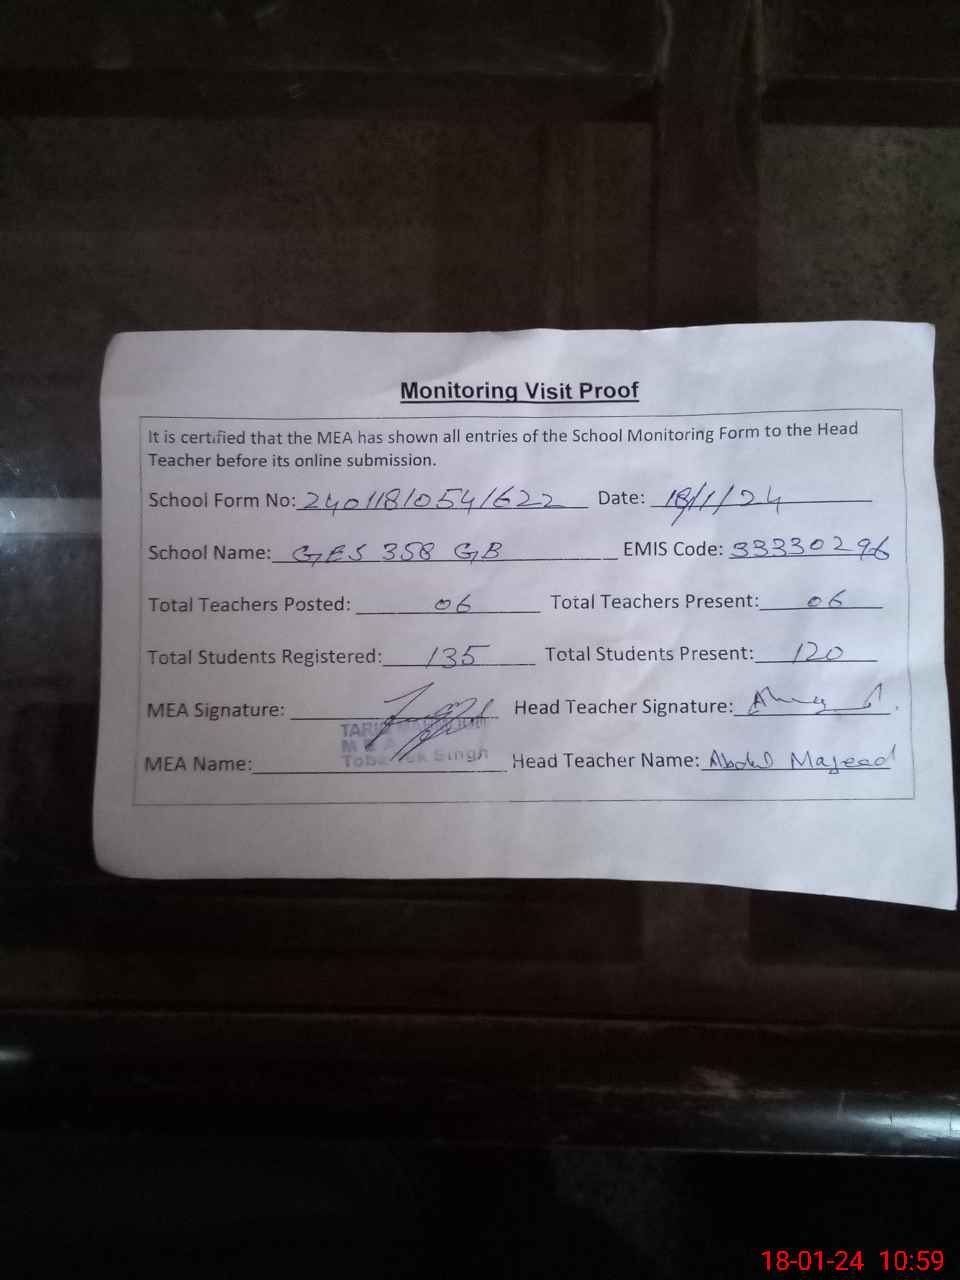 Monitoring Visit Proof
It is certified that the MEA has shown all entries of the School Monitoring Form to the Head
Teacher before its online submission.
School Form No: 24011810541622 Date: 18/1/24
School Name: GES 358 GB EMIS Code: 33330296
Total Teachers Posted: 06 Total Teachers Present: 06
Total Students Registered: 135 Total Students Present: 120
MEA Signature: Head Teacher Signature:
M E A
Singh
MEA Name: Head Teacher Name: Abdul Majeed
18-01-24 10:59